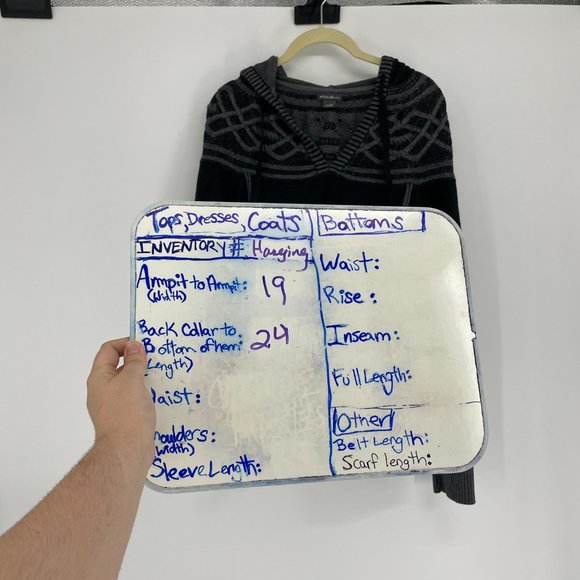 Tops, Dresses, Coats
INVENTORY # Hanging
Armpit to Armpit: 19
(Width)
Back Collar to
Bottom of hem: 24
(Length)
Waist:
Shoulders:
(Width)
Sleeve Length:
Bottoms
Waist:
Rise:
Inseam:
Full Length:
Other
Belt Length:
Scarf length: